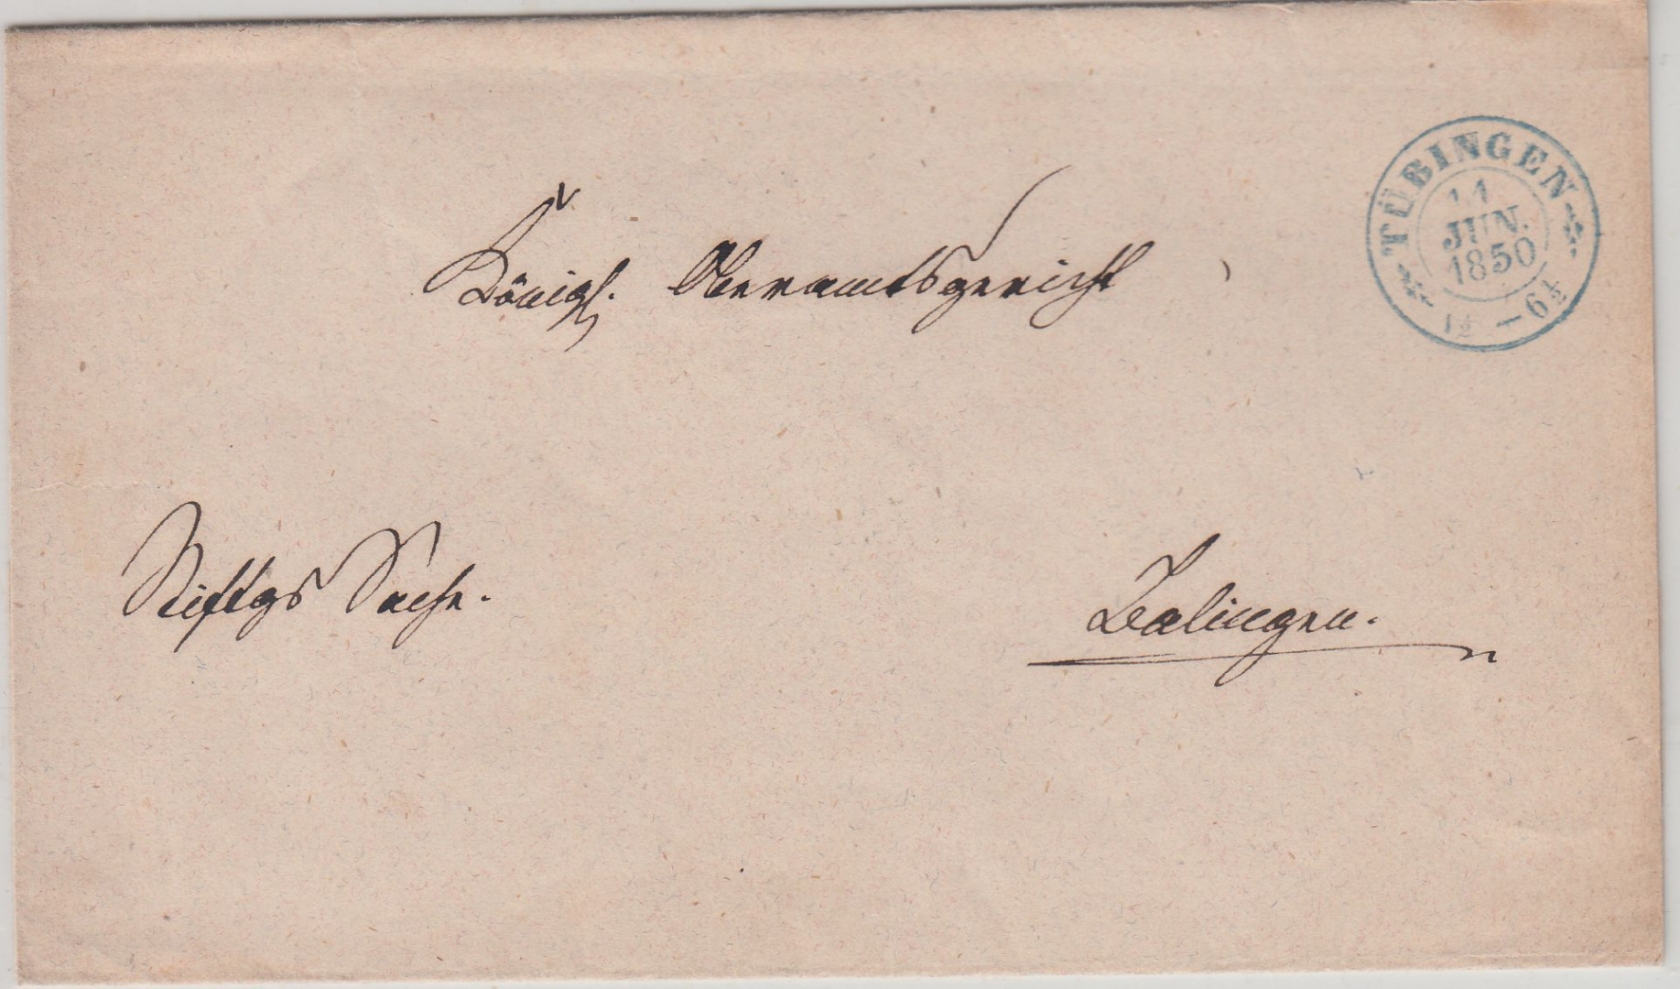 TÜBINGEN
11
JUN.
1850
1½ — 6½
Königl. Oberamtsgericht
Balingen.
Sache.